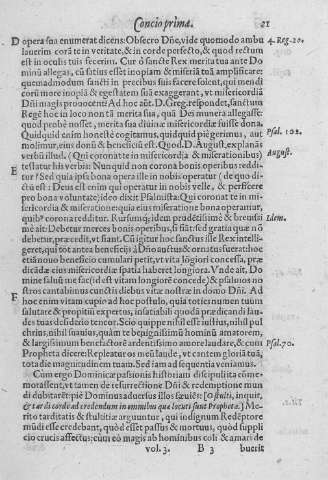 Concio prima. 21
D opera sua enumerat dicens: Obsecro Dñe, vide quomodo ambu 4. Reg. 20.
lauerim corā te in veritate, & in corde perfecto, & quod rectum
est in oculis tuis fecerim. Cur ô sancte Rex merita tua ante Do
minū allegas, cū satius esset inopiam & miseriā tuā amplificare:
quemadmodum sancti in precibus suis facere solent, qui mendi
corū more inopiā & egestatem suā exaggerant, vt misericordiā
Dñi magis prouocent? Ad hoc aūt. D. Greg. respondet, sanctum
Regē hoc in loco non tā merita sua, quā Dei munera allegasse:
quod probè nosset, merita sua diuinæ misericordiæ iuisse dona.
Quidquid enim honestè cogitamus, quidquid piè gerimus, aut Psal. 102.
molimur, eius donū & beneficiū est. Quod. D. August. explanās August.
verbū illud. (Qui coronat te in misericordia & miserationibus)
testatur his verbis: Nunquid non corona bonis operibus reddi-
E tur? Sed quia ipsa bona opera ille in nobis operatur (de quo di-
ctū est: Deus est enim qui operatur in nobis velle, & perficere
pro bona voluntate) ideo dixit Psalmista: Qui coronat te in mi-
sericordia & miseratione: quia eius miseratione bona operamur,
quibꝰ corona redditur. Rursumq; idem prudētissimè & breuissi Idem.
mè ait: Debetur merces bonis operibus, si fiāt: sed gratia quæ nō
debetur, præcedit, vt fiant. Cū igitur hoc sanctus ille Rex intellige-
geret, qui tot antea beneficijs à Dño auctus & ornatus fuerat: hoc
etiā nouo beneficio cumulari petit, vt vita lōgiori concessa, præ-
dicādæ eius misericordiæ spatia haberet longiora. Vnde ait, Do
mine saluū me fac (id est vitam longiorē concede) & psalmos no
F stros cantabimus cunctis diebus vitæ nostræ in domo Dñi. Ad
hoc enim vitam cupio ad hoc postulo, quia toties numen tuum
salutare & propitiū expertus, insatiabili quodā prædicandi lau-
des tuas desiderio teneor. Scio quippe nihil est iustius, nihil pul
chrius, nihil suauius, quàm te benignissimū hominū amatorem,
& largissimum benefactorē ardentissimo amore laudare, & cum Psal. 70.
Propheta dicere: Repleatur os meū laude, vt cantem gloriā tuā,
tota die magnitudinem tuam. Sed iam ad sequentia veniamus.
Cum ergo Dominicæ passionis historiam discipuli cōme-
morassent, vt tamen de resurrectione Dñi & redemptione mun
di dubitarēt: piè Dominus aduersus illos sæuiēs: [O stulti, inquit,
& tardi corde ad credendum in omnibus quæ locuti sunt Prophetæ.] Me-
rito tarditatis & stultitiæ arguuntur, qui indignum Redēptore
mūdi esse credebant, quòd esset passus & mortuus, quòd suppli
cio crucis affectus: cum eò magis ab hominibus coli & amari de
vol. 3. B 3 buerit